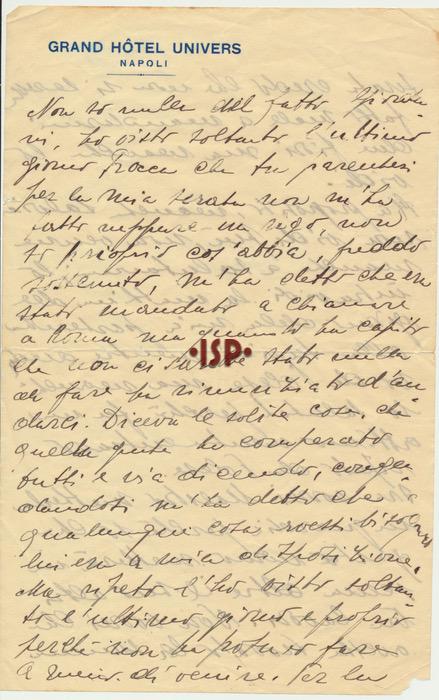 GRAND HÔTEL UNIVERS
NAPOLI
Non so nulla del fatto Giovan
ni, ho visto soltanto l'ultimo
giorno Trocca che tu
per la mia serata non m'ha
fatto neppure un rigo, non
so proprio cos'abbia, freddo
sostenuto, m'ha detto che era
stato mandato a chiamare
a Roma ma quando ha capito
che non ci stato nulla
da fare ha rinunziato d'an
darci. Diceva le solite cose, che
quella gente ha comperato
tutti e via dicendo, conge
dandosi m'ha detto che a
qualunque cosa avessi bisogno
lui era a mia disposizione.
Ma ripeto l'ho visto soltan
to l'ultimo giorno e proprio
perché non ha potuto fare
a meno di venire. Per la
•ISP•